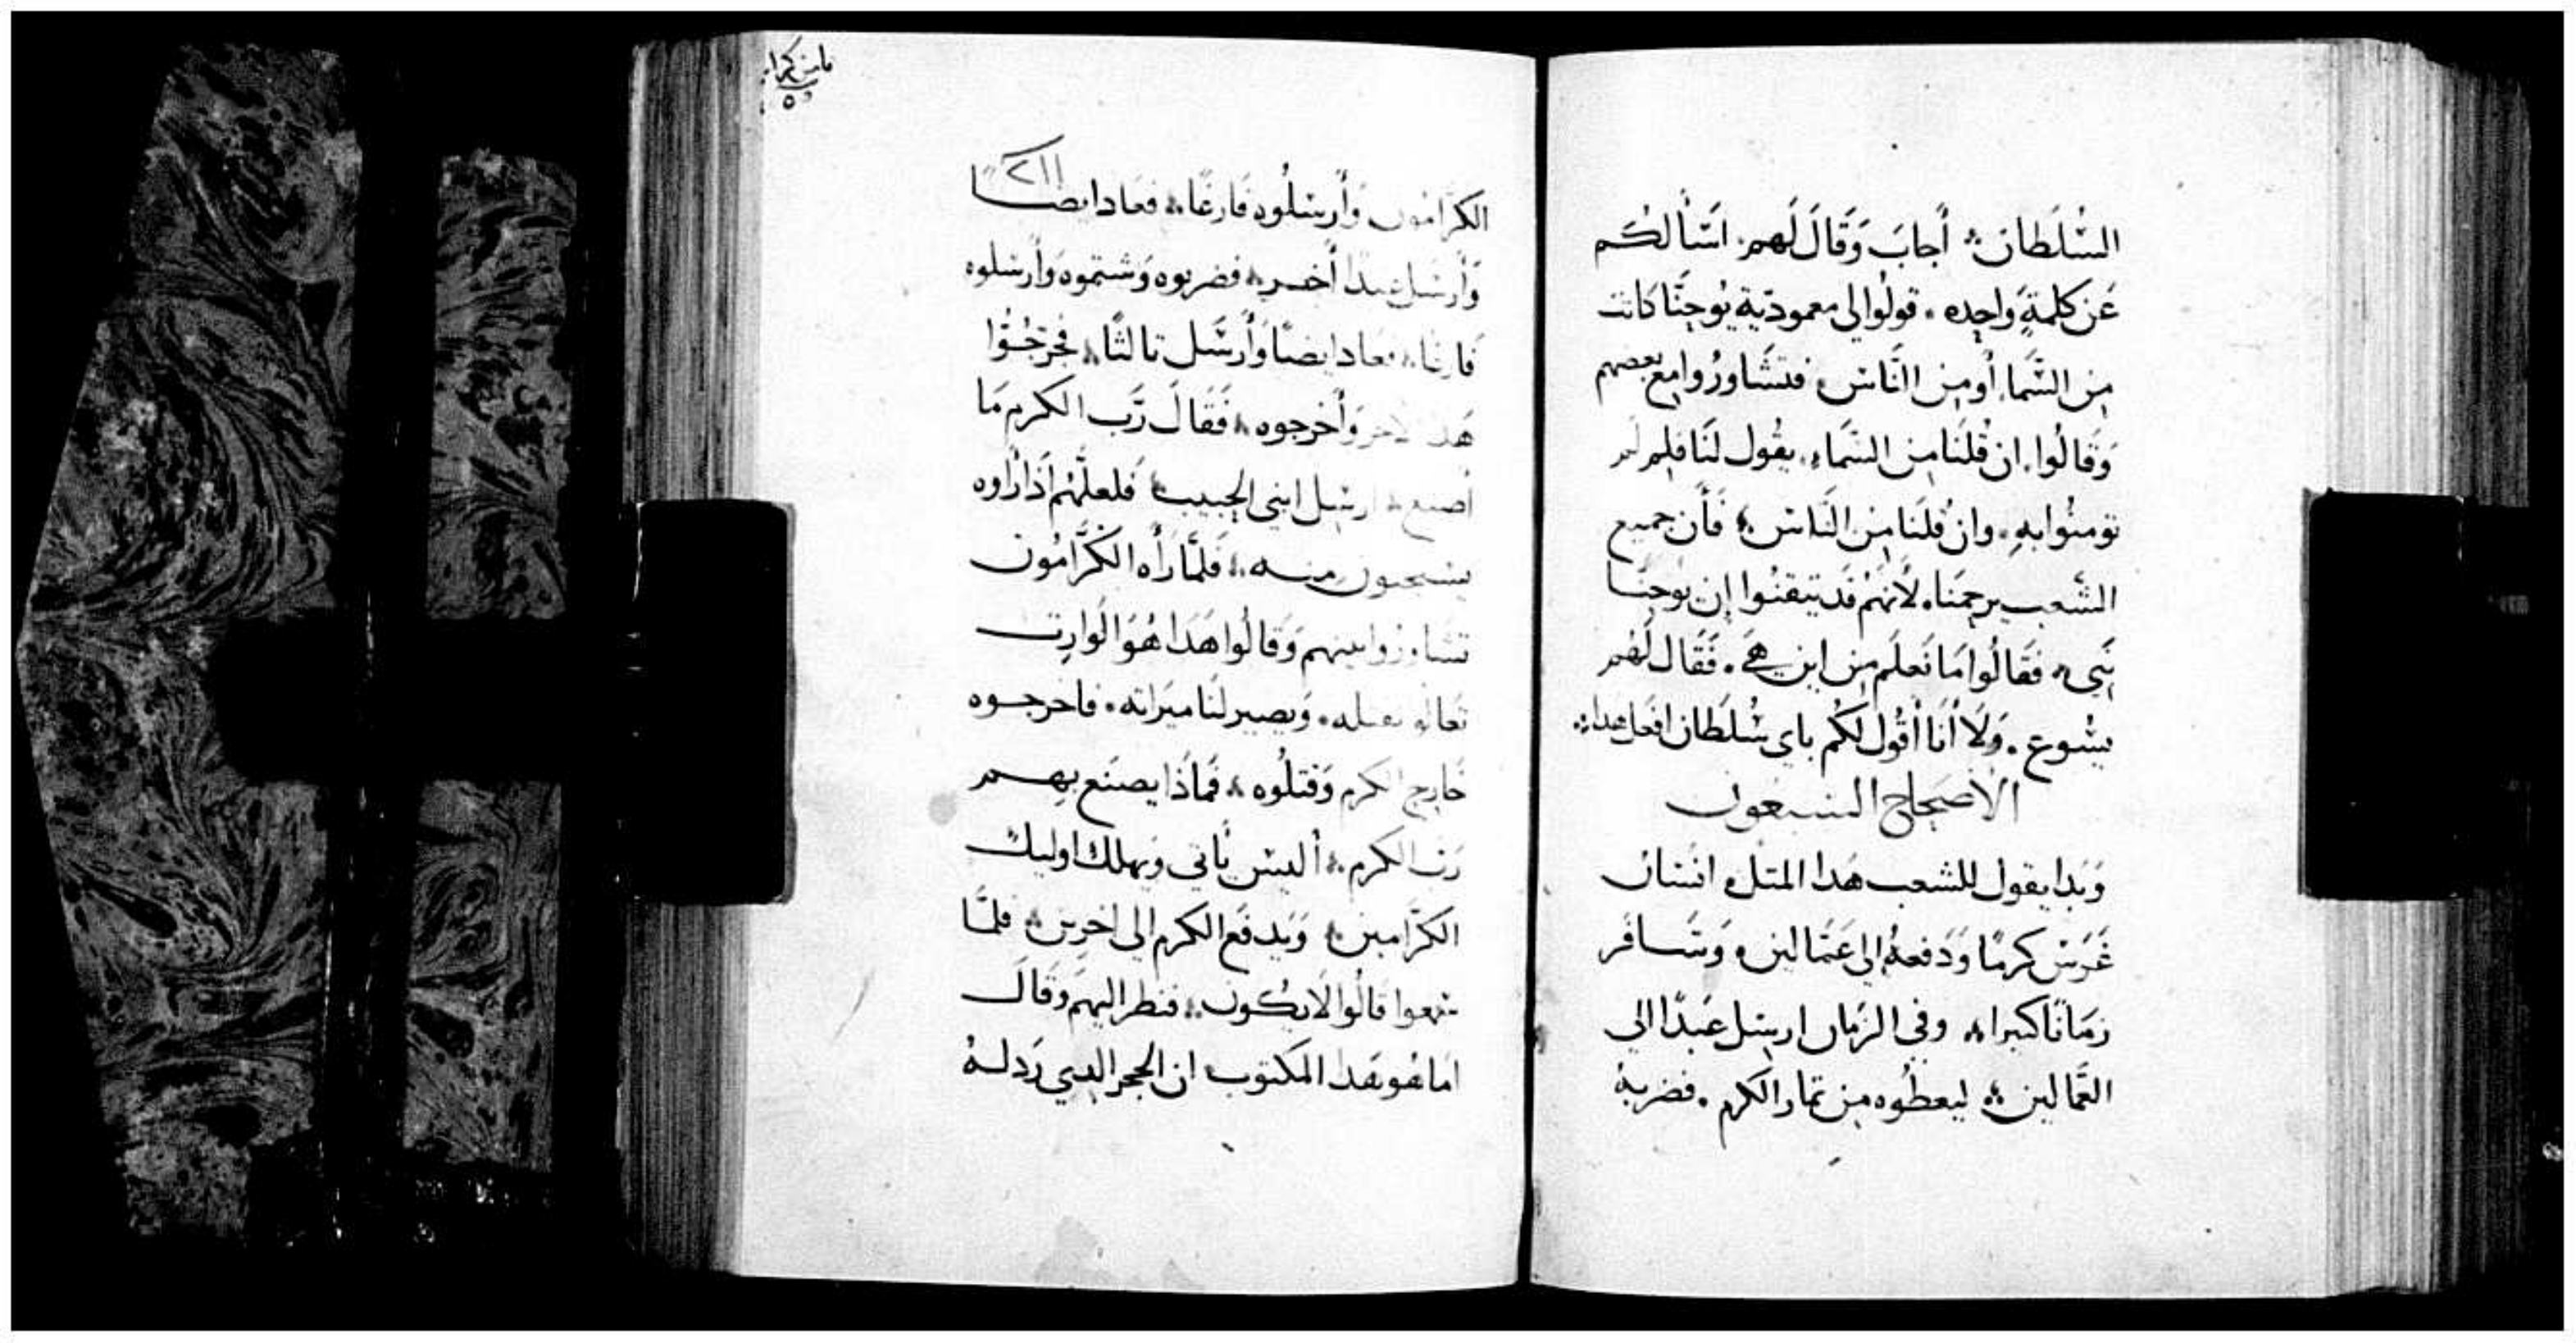 السلطان أجابَ وَقَالَ لَهم اسَألكُم
عَن كلمةٍ وَاحِده قولُوا لي معموديّة يُوحنَّا كانت
مِن السَّماء أومِن النَّاس فتشَاورُوا مع بعضهم
وَقَالُوا ان قُلنَا مِن السَّماء يقُول لنَا فلم لم
تومنُوا بهِ وان قُلنَا مِن النَّاس فَأن جميع
الشَّعب يرجمنَا لأنهُم قَد تيقنُوا إن يُوحنَّا
نَبِي فقَالُوا مَا نَعلَم مِن اين هِي فَقَال لَهُم
يسُوع وَلَا أنَا أقُول لكُم باي سُلطَان افعَل هدا
الأصحاح السبعون
وَبَدا يقول للشعب هَدا المتل انسَان
غَرَس كرمًا وَدَفعهُ إلي عَمَّالين وَسَافَر
زمَانًا كبيرا وفي الزمَان ارسِل عَبدًا الي
العَّمالين ليعطُوه مِن تمار الكرم فضربهُ
مابن كرا
٢١١
الكرَّامُون وَأرسَلُوه فَارغًا فعَاد ايضًا
وَأرسَل عبدًا أخر فضربوه وَشتموه وَأرسَلوه
فَارغًا فعَاد ايضًا وَأرسَل تالثًا فجرَحُوا
هَدا الاخر وَأخرجوه فَقَالَ رَّب الكرم مَا
أصنع ارسِل ابني الحبيب فلعلَّهُم اذا رَاوه
يستحيون منه فَلمَّا رَأه الكَرَّامُون
تشاورُوا بينهم وَقالُوا هَدا هُوَ الوَارِت
تعَالو نقتله وَيصير لنَا ميرَاته فاخرجوه
خَارِج الكرم وَقتلُوه فمَاذا يصنَع بهم
رَب الكرم أليسَ يَأتي ويهلك اوليك
الكرَّامين وَيَدفَع الكرم الي اخرين فلمَّا
سَمعوا قَالُوا لَايكُون فنظر اليهم وَقَال
امَا هُو هَدا المكتوب ان الحجر الدي رَدلهُ